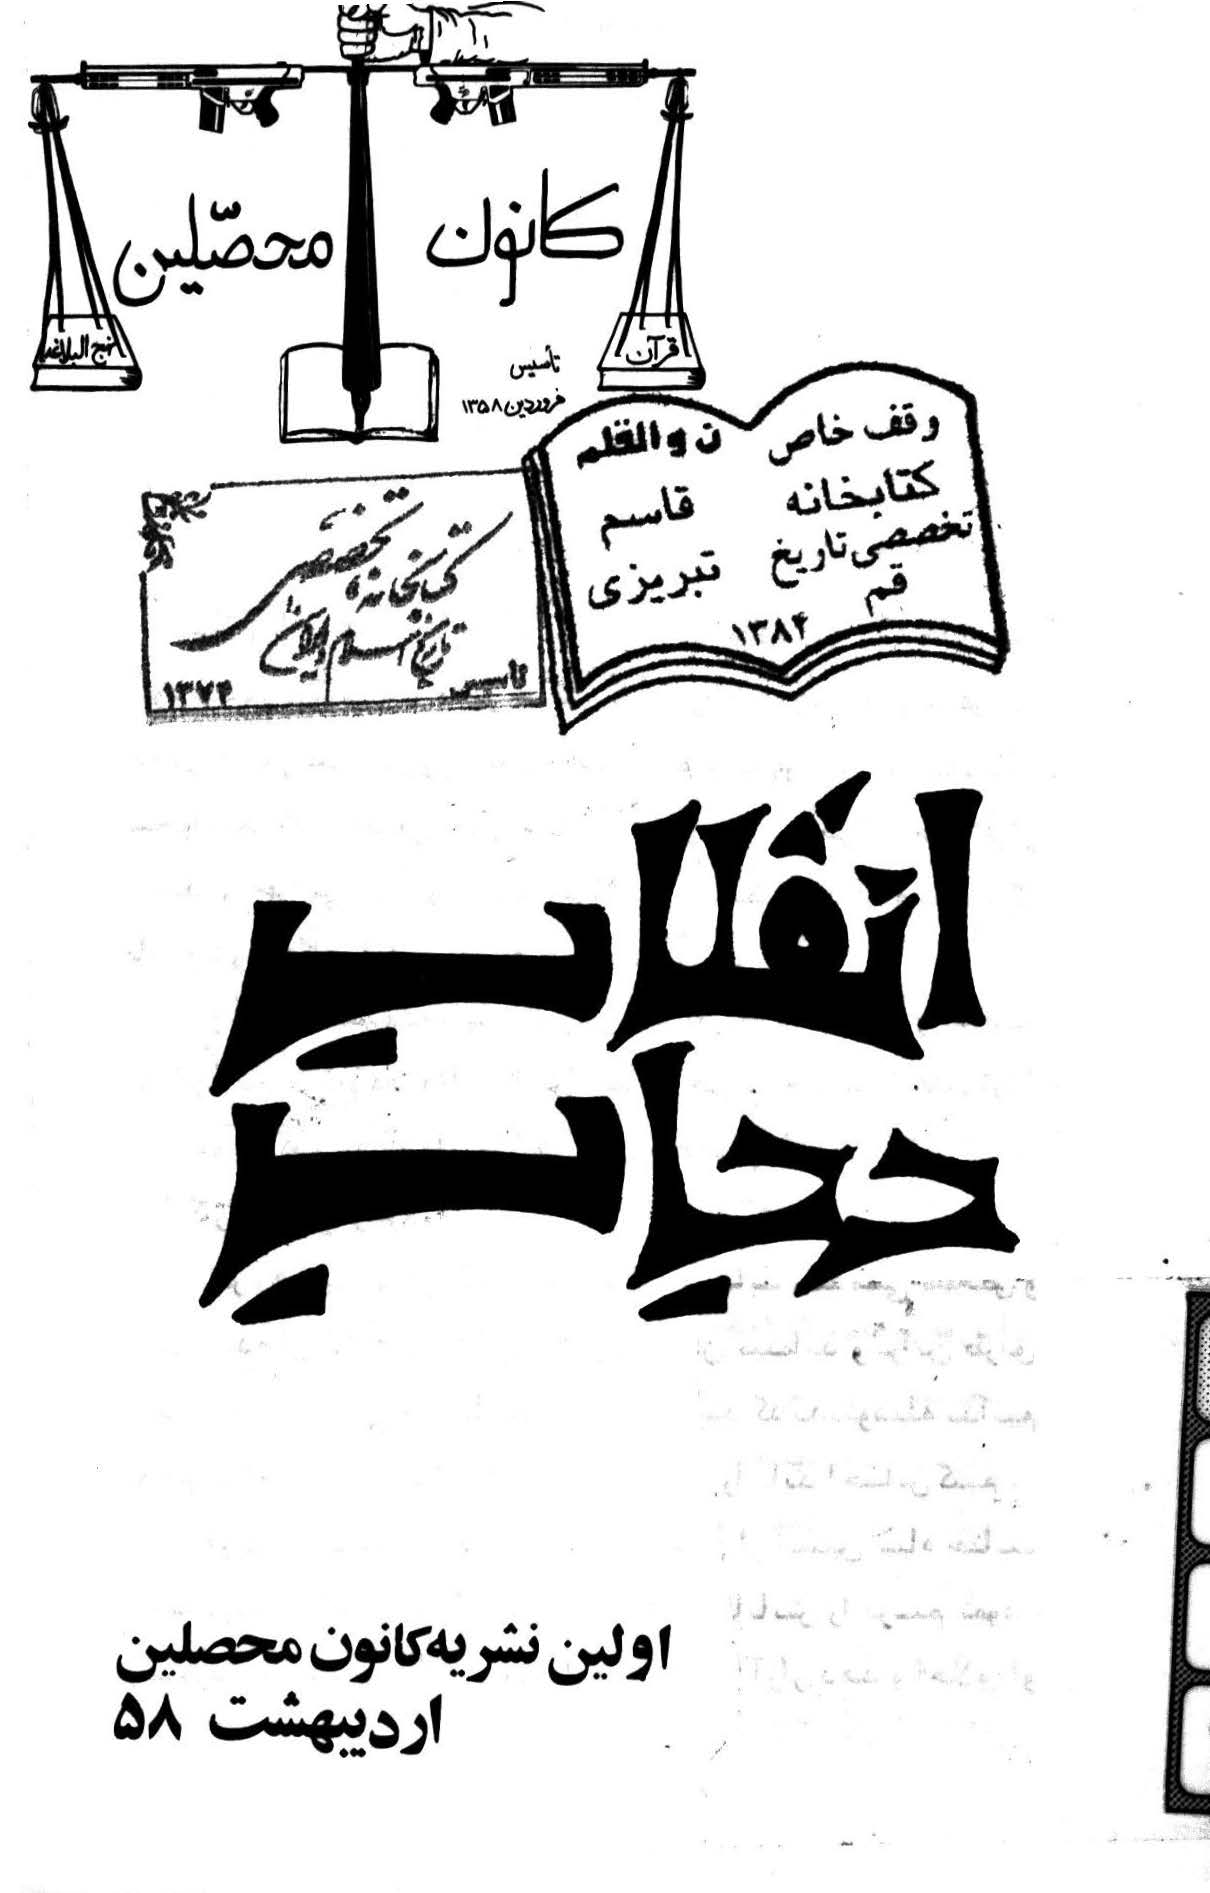 کانون محصّلین
قرآن
نهج البلاغه
تأسیس
فروردین ۱۳۵۸
وقف خاص
کتابخانه
تخصصی تاریخ
قم
ن والقلم
قاسم
تبریزی
۱۳۸۴
کتابخانه تخصصی
تاریخ اسلام و ایران
تاسیس ۱۳۷۴
انقلاب
حجاب
اولین نشریه کانون محصلین
اردیبهشت ۵۸